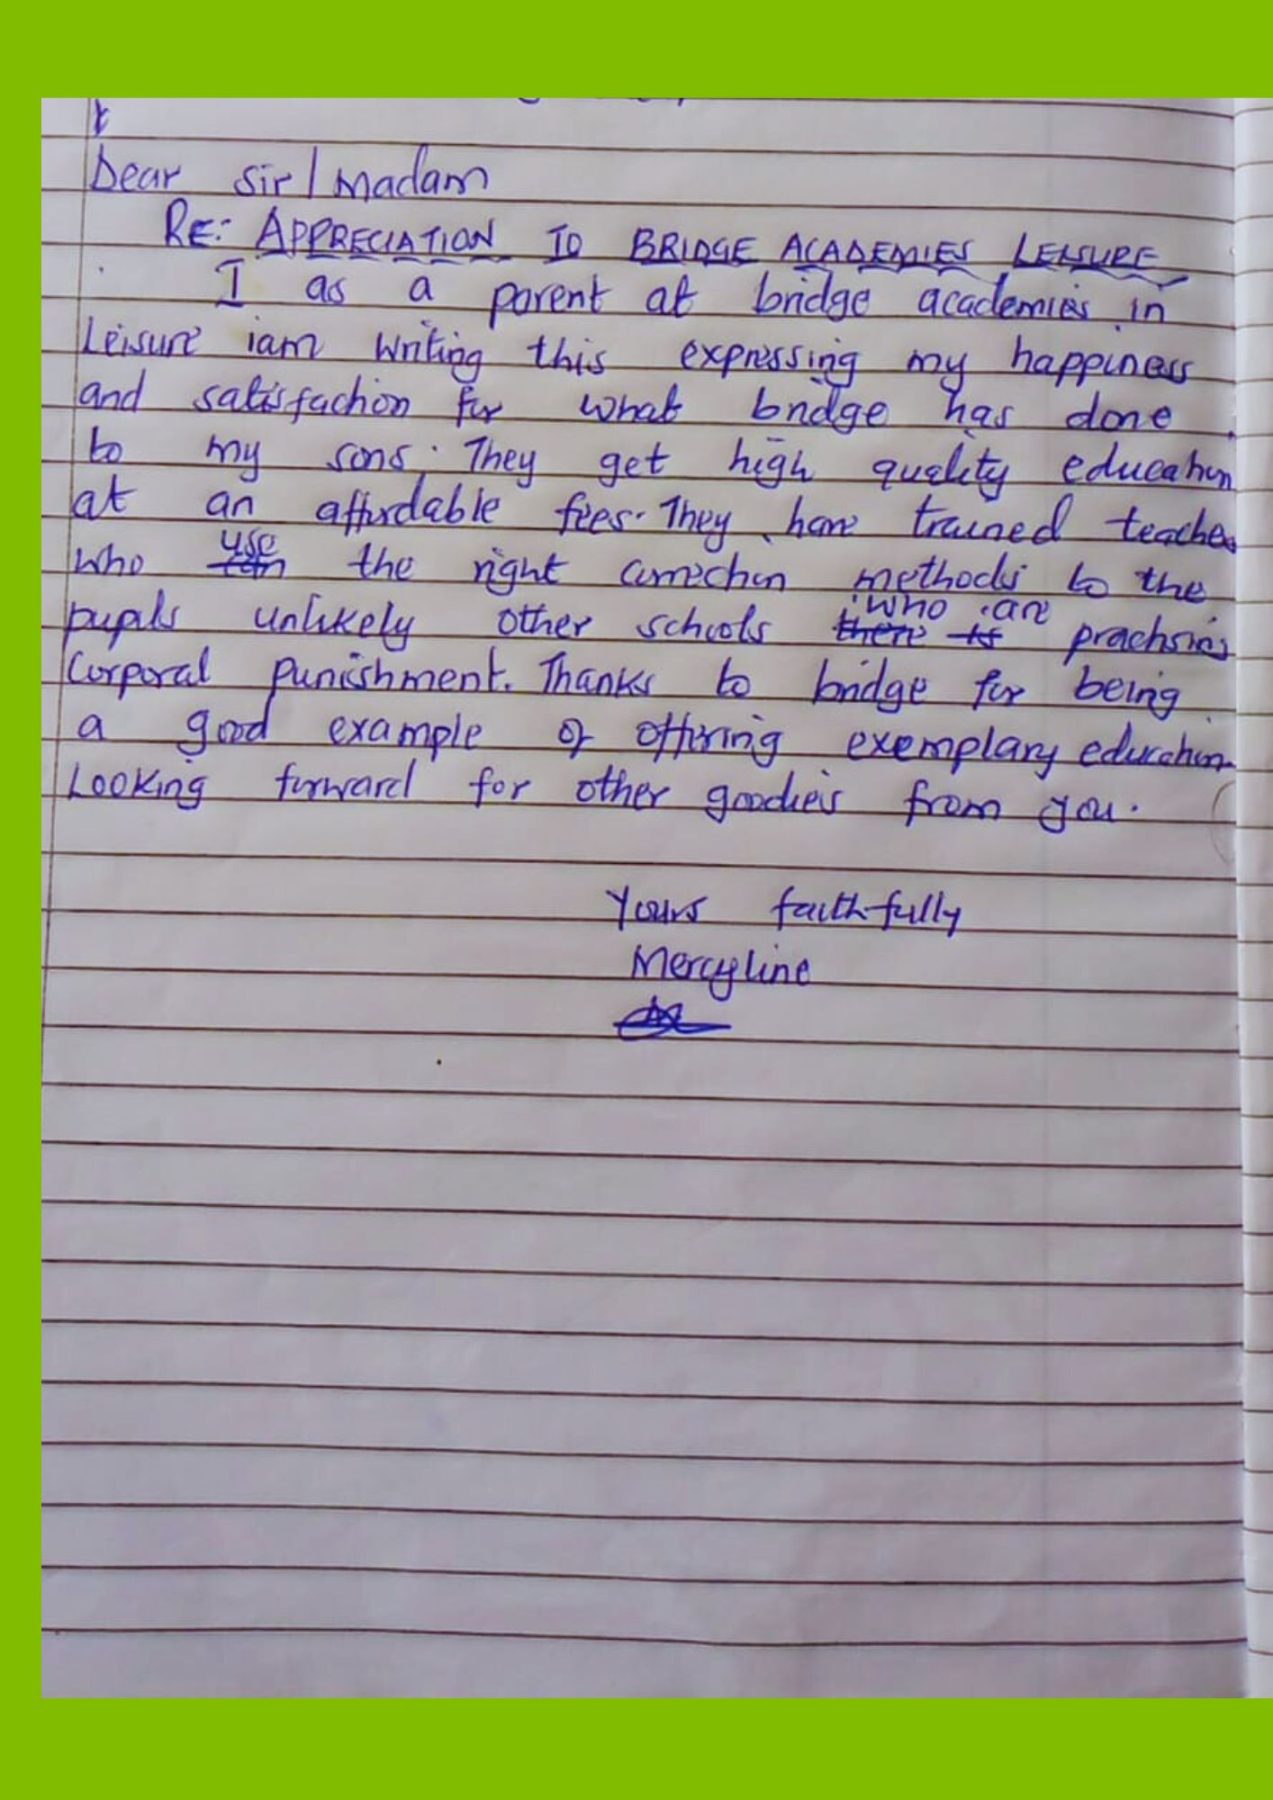 Dear Sir / Madam
RE: APPRECIATION TO BRIDGE ACADEMIES LEISURE
I as a parent at bridge academies in
Leisure iam writing this expressing my happiness
and satisfaction for what bridge has done
to my sons. They get high quality education
at an affordable fees. They have trained teachers
who use the right correction methods to the
pupils unlikely other schools who are practising
corporal punishment. Thanks to bridge for being
a good example of offering exemplary education
Looking forward for other goodies from you.
Yours faithfully
Mercyline